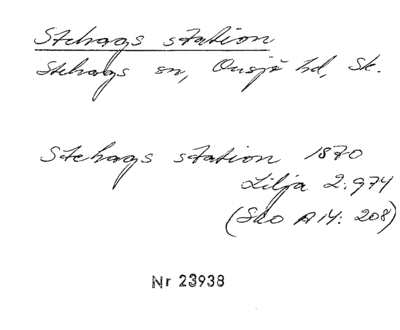 Stehags station
Stehags sn, Onsjö hd, Sk.
Stehags station 1870
Lilja 2:974
(Sko A 14: 208)
Nr 23938